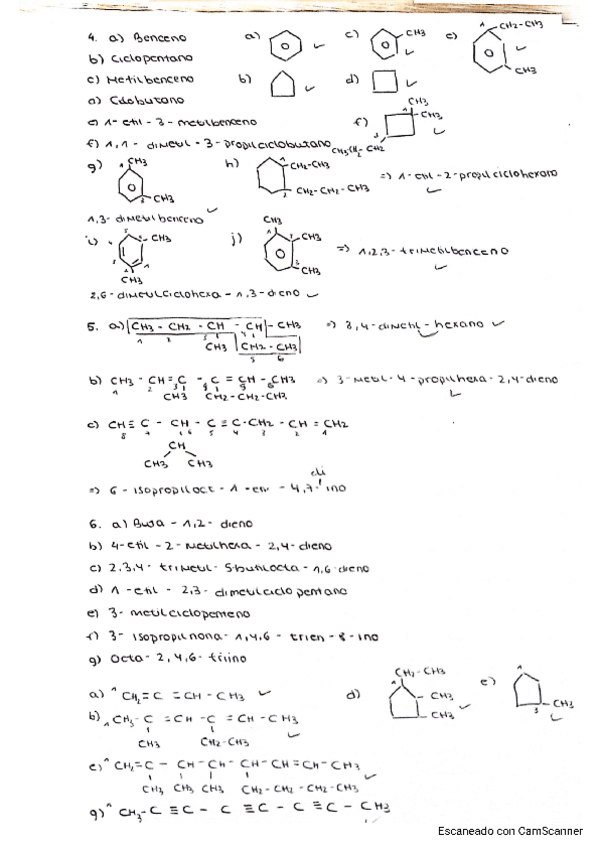 4. a) Benceno
b) Ciclopentano
c) Metilbenceno
d) Ciclobutano
e) 1-etil-3-metilbenceno
f) 1,1-dimetil-3-propilciclobutano
a) ✓ c) CH3 ✓ e) CH2-CH3 ✓ CH3
b) ✓ d) ✓
f) CH3 CH3 CH3CH2-CH2 ✓
g) CH3 CH3 ✓
1,3-dimetilbenceno
h) CH2-CH3 CH2-CH2-CH3 => 1-etil-2-propilciclohexano ✓
i) CH3 CH3
2,6-dimetilciclohexa-1,3-dieno ✓
j) CH3 CH3 CH3 => 1,2,3-trimetilbenceno ✓
5. a) CH3 - CH2 - CH - CH - CH3 => 3,4-dimetil-hexano ✓
CH3 CH2-CH3
b) CH3 - CH = C - C = CH - CH3 => 3-metil-4-propilhexa-2,4-dieno ✓
CH3 CH2-CH2-CH3
c) CH ≡ C - CH - C ≡ C-CH2 - CH = CH2
8 7 6 5 4 3 2 1
CH
CH3 CH3
=> 6-isopropiloct-1-en-4,7-diino
6. a) Buta-1,2-dieno
b) 4-etil-2-metilhexa-2,4-dieno
c) 2,3,4-trimetil-5butilocta-1,6-dieno
d) 1-etil-2,3-dimetilciclopentano
e) 3-metilciclopenteno
f) 3-isopropilnona-1,4,6-trien-8-ino
g) Octa-2,4,6-triino
a) 1 CH2=C=CH-CH3 ✓
b) 1 CH3-C=CH-C=CH-CH3 ✓
CH3 CH2-CH3
d) CH2-CH3 CH3 CH3 ✓
e) 1 3 CH3 ✓
c) 1 CH2=C-CH-CH-CH-CH=CH-CH3 ✓
CH3 CH3 CH3 CH2-CH2-CH2-CH3
g) 1 CH3-C≡C-C≡C-C≡C-CH3
Escaneado con CamScanner